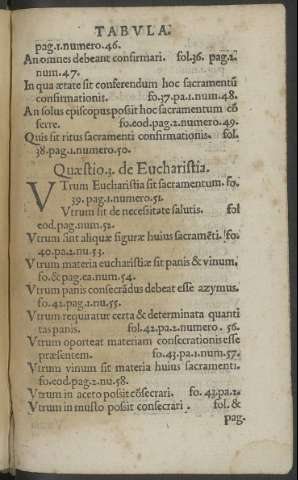 TABVLA.
pag.1.numero.46.
An omnes debeant confirmari. fol.36. pag.2.
num.47.
In qua ætate sit conferendum hoc sacramentũ
confirmationis. fo.37.pa.1.num.48.
An solus episcopus possit hoc sacramentum cõ
ferre. fo.eod.pag.2.numero.49.
Quis sit ritus sacramenti confirmationis. fol.
38.pag.1.numero.50.
Quæstio.3. de Eucharistia.
VTrum Eucharistia sit sacramentum. fo.
39. pag.1.numero.51.
Vtrum sit de necessitate salutis. fol
eod.pag.num.52.
Vtrum sint aliquæ figuræ huius sacramẽti. fo.
40.pa.2.nu.53.
Vtrum materia eucharistiæ sit panis & vinum.
fo.& pag.ea.num.54.
Vtrum panis consecrãdus debeat esse azymus.
fo.42.pag.1.nu.55.
Vtrum requiratur certa & determinata quanti
tas panis. fol.42.pa.2.numero. 56.
Vtrum oporteat materiam consecrationis esse
præsentem. fo.43.pa.1.num.57.
Vtrum vinum sit materia huius sacramenti.
fo.eod.pag.2.nu.58.
Vtrum in aceto possit cõsecrari. fo. 43.pa.2.
Vtrum in musto possit consecrari. fol. &
pag.